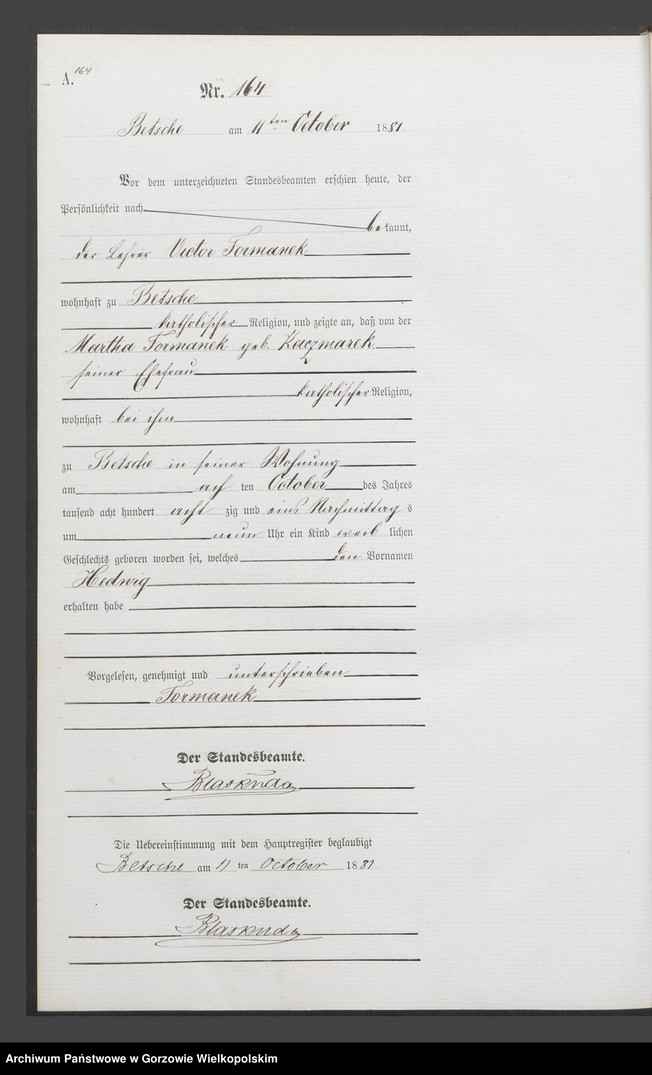 A. 164
Nr. 164
Betsche am 11 ten October 1881
Vor dem unterzeichneten Standesbeamten erschien heute, der
Persönlichkeit nach
bekannt,
der Lehrer Victor Formanek
wohnhaft zu Betsche
katholischer Religion, und zeigte an, daß von der
Martha Formanek geb. Kaczmarek
seiner Ehefrau
katholischer Religion,
wohnhaft bei ihm
zu Betsche in seiner Wohnung
am ach ten October des Jahres
tausend acht hundert acht zig und eins Nachmittag s
um neun Uhr ein Kind weib lichen
Geschlechts geboren worden sei, welches den Vornamen
Hedwig
erhalten habe
Vorgelesen, genehmigt und unterschrieben
Formanek
Der Standesbeamte.
Die Uebereinstimmung mit dem Hauptregister beglaubigt
Betsche am 11 ten October 1881
Der Standesbeamte.
Archiwum Państwowe w Gorzowie Wielkopolskim